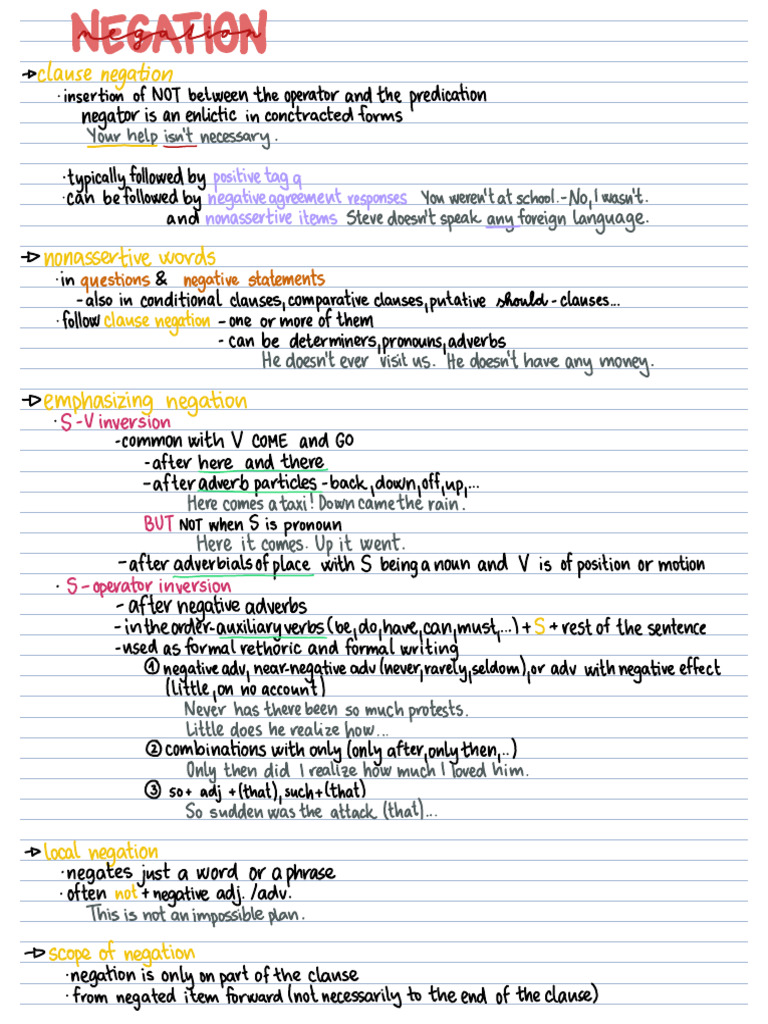 NEGATION
negation
clause negation
·insertion of NOT between the operator and the predication
negator is an enlictic in conctracted forms
Your help isn't necessary.
·typically followed by positive tag q
·can be followed by negative agreement responses You weren't at school.-No, I wasn't.
and nonassertive items Steve doesn't speak any foreign language.
nonassertive words
·in questions & negative statements
-also in conditional clauses, comparative clauses, putative should-clauses...
·follow clause negation - one or more of them
- can be determiners, pronouns, adverbs
He doesn't ever visit us. He doesn't have any money.
emphasizing negation
·S-V inversion
-common with V COME and GO
-after here and there
-after adverb particles -back, down, off, up,...
Here comes a taxi! Down came the rain.
BUT NOT when S is pronoun
Here it comes. Up it went.
-after adverbials of place with S being a noun and V is of position or motion
· S-operator inversion
-after negative adverbs
-in the order-auxiliary verbs (be, do, have, can, must,...) + S + rest of the sentence
-used as formal rethoric and formal writing
① negative adv, near-negative adv (never, rarely, seldom), or adv with negative effect
(little, on no account)
Never has there been so much protests.
Little does he realize how...
② combinations with only (only after, only then,..)
Only then did I realize how much I loved him.
③ so+ adj +(that), such+(that)
So sudden was the attack (that)...
local negation
·negates just a word or a phrase
·often not + negative adj./adv.
This is not an impossible plan.
scope of negation
·negation is only on part of the clause
·from negated item forward (not necessarily to the end of the clause)